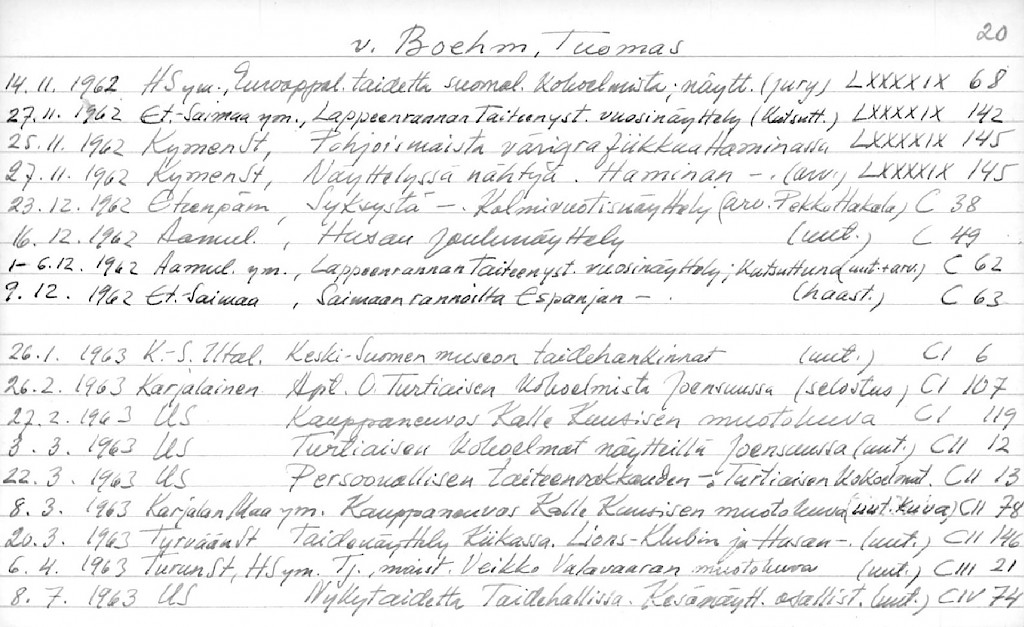 20
v. Boehm, Tuomas
14.11. 1962 HS ym., Eurooppal. taidetta suomal. kokoelmista; näytt. (jury) LXXXXIX 68
27.11. 1962 Et.-Saimaa ym., Lappeenrannan Taiteenyst. vuosinäyttely (Kutsutt.) LXXXXIX 142
25.11. 1962 KymenSt, Pohjoismaista värigrafiikkaa Haminassa LXXXXIX 145
27.11. 1962 KymenSt, Näyttelyssä nähtyä. Haminan -. (arv.) LXXXXIX 145
23.12. 1962 Eteenpäin, Syksystä -. Kolmivuotisnäyttely (arv. Pekka Hakala) C 38
16.12. 1962 Aamul., Husan Joulunäyttely (uut.) C 49
1-6.12. 1962 Aamul. ym., Lappeenrannan Taiteenyst. vuosinäyttely; Kutsuttuna (uut.+arv.) C 62
9.12. 1962 Et.-Saimaa, Saimaan rannoilta Espanjan -. (haast.) C 63
26.1. 1963 K.-S. Iltal. Keski-Suomen museon taidehankinnat (uut.) CI 6
26.2. 1963 Karjalainen Apt. O. Turtiaisen kokoelmista Joensuussa (selostus) CI 107
27.2. 1963 US Kauppaneuvos Kalle Kuusisen muotokuva CI 119
3.3. 1963 US Turtiaisen kokoelmat näytteillä Joensuussa (uut.) CII 12
22.3. 1963 US Persoonallisen taiteenrakkauden -: Turtiaisen kokoelmat. CII 13
8.3. 1963 Karjalan Maa ym. Kauppaneuvos Kalle Kuusisen muotokuva (uut. kuva) CII 78
20.3. 1963 TyrväänSt Taidenäyttely Kiikassa. Lions-Klubin ja Husan -. (uut.) CII 146
6.4. 1963 TurunSt, HS ym. Tj., maist. Veikko Valavaaran muotokuva (uut.) CIII 21
8.7. 1963 US Nykytaidetta Taidehallissa. Kesänäytt. osallist. (uut.) CIV 74